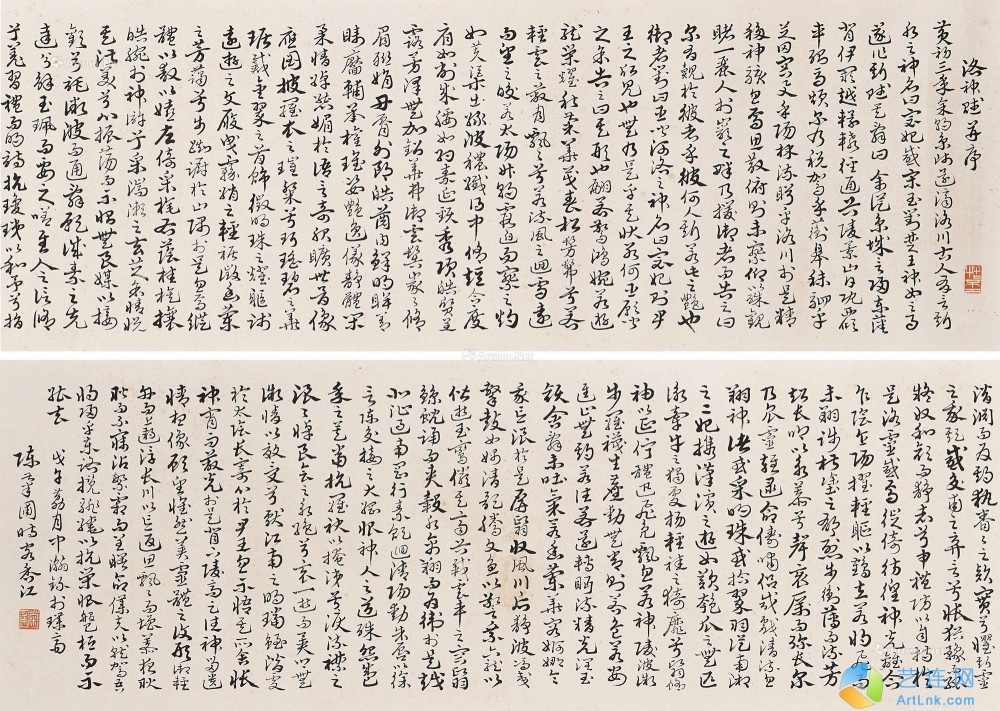 洛神賦并序
黃初三年余朝京師還濟洛川古人有言斯
水之神名曰宓妃感宋玉對楚王神女之事
遂作斯賦其辭曰余從京域言歸東藩
背伊闕越轘轅經通谷陵景山日既西傾
車殆馬煩爾乃稅駕乎蘅皋秣駟乎
芝田容與乎陽林流眄乎洛川於是精
移神駭忽焉思散俯則未察仰以殊觀
睹一麗人於巖之畔乃援御者而告之曰
爾有覿於彼者乎彼何人斯若此之艷也
御者對曰臣聞河洛之神名曰宓妃則君
王之所見也無乃是乎其狀若何臣願聞
之余告之曰其形也翩若驚鴻婉若遊
龍榮曜秋菊華茂春松髣髴兮若
輕雲之蔽月飄飄兮若流風之回雪遠
而望之皎若太陽升朝霞迫而察之灼
如芙蕖出淥波穠纖得中修短合度
肩如削成腰如約素延頸秀項皓質呈
露芳澤無加鉛華弗御雲髻峩峩修
眉聯娟丹唇外朗皓齒內鮮明眸善
睞靨輔承權瑰姿艷逸儀靜體閑
柔情綽態媚於語言奇服曠世骨像
應圖披羅衣之璀粲兮珥瑤碧之華
琚戴金翠之首飾綴明珠以耀軀踐
遠遊之文履曳霧綃之輕裾微幽蘭
之芳藹兮步踟躕於山隅於是忽焉縱
體以遨以嬉左倚采旄右蔭桂旗攘
皓腕於神滸兮采湍瀨之玄芝余情悅
其淑美兮心振蕩而不怡無良媒以接
歡兮託微波而通辭願誠素之先
達兮解玉珮而要之嗟佳人之信修
羌習禮而明詩抗瓊珶以和予兮指
潛淵而為期執眷眷之款實兮懼斯靈
之我欺感交甫之棄言兮悵猶豫而狐疑
收和顏而靜志兮申禮防以自持於
是洛靈感焉徙倚彷徨神光離合
乍陰乍陽擢輕軀以鶴立若將飛而
未翔踐椒塗之郁烈步蘅薄而流芳
超長吟以永慕兮聲哀厲而彌長爾
乃眾靈雜遝命儔嘯侶或戲清流或
翔神渚或采明珠或拾翠羽從南湘
之二妃攜漢濱之遊女歎匏瓜之無匹
詠牽牛之獨處揚輕袿之猗靡兮翳修
袖以延佇體迅飛鳧飄忽若神凌波微
步羅襪生塵動無常則若危若安
進止難期若往若還轉眄流精光潤玉
顏含辭未吐氣若幽蘭華容婀娜令
我忘湌於是屏翳收風川后靜波馮夷
擊鼓女媧清歌騰文魚以警乘六龍以
偕逝玉鸞儼其齊首載雲車之容裔
鯨鯢踊而夾轂水禽翔而為衛於是越
北沚過南岡紆素領迴清陽動朱唇以徐
言陳交接之大綱恨神人之道殊怨盛
年之莫當抗羅袂以掩涕兮淚流襟之
浪浪悼良會之永絕兮哀一逝而異鄉無
微情以效愛兮獻江南之明璫雖潛處
於太陰長寄心於君王忽不悟其所舍悵
神宵而蔽光於是背下陵高足往神留遺
情想像顧望懷愁冀靈體之復形御輕
舟而上遡浮長川以忘返思飄飄而增慕夜耿
耿而不寐沾繁霜而至曙命僕夫以就駕吾
將歸乎東路攬騑轡以抗策悵盤桓而不
能去 戊午荔月中澣錄於珠
陳 時客香江
艺连网
ArtLnk.com